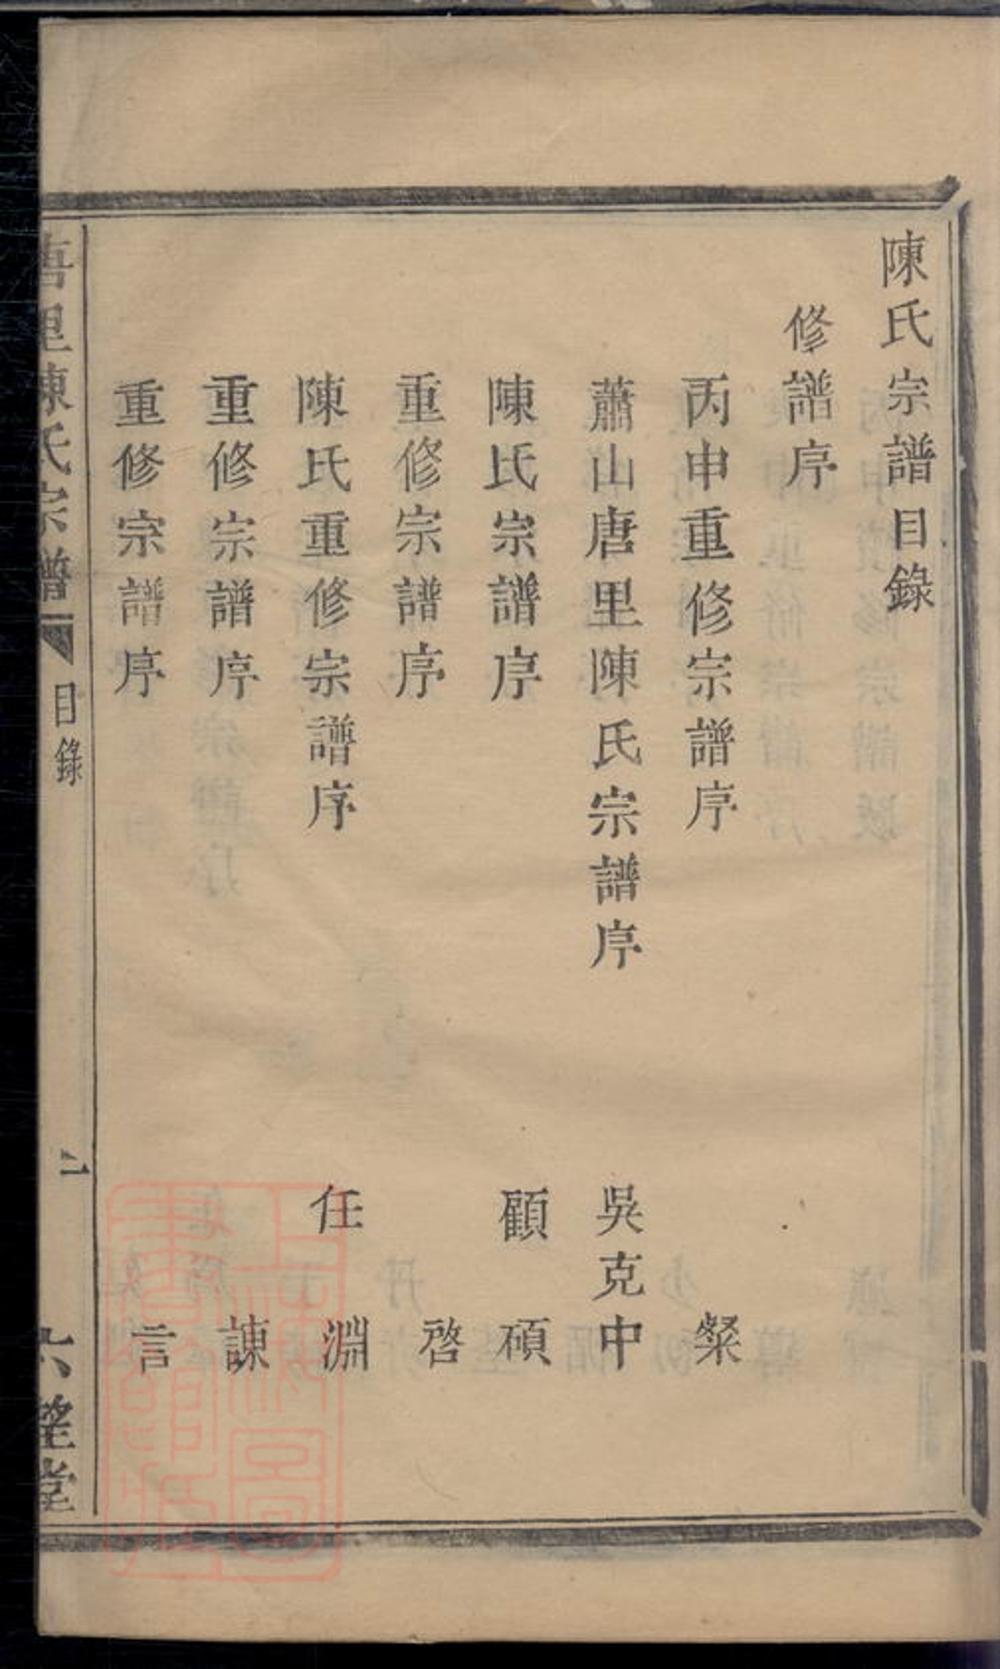 陳氏宗譜目錄
修譜序
丙申重修宗譜序 粲
蕭山唐里陳氏宗譜序 吳克中
陳氏宗譜序 顧碩
重修宗譜序 啓
陳氏重修宗譜序 任淵
重修宗譜序 諫
重修宗譜序 言
唐里陳氏宗譜 目錄 一 六望堂
上海圖書館藏